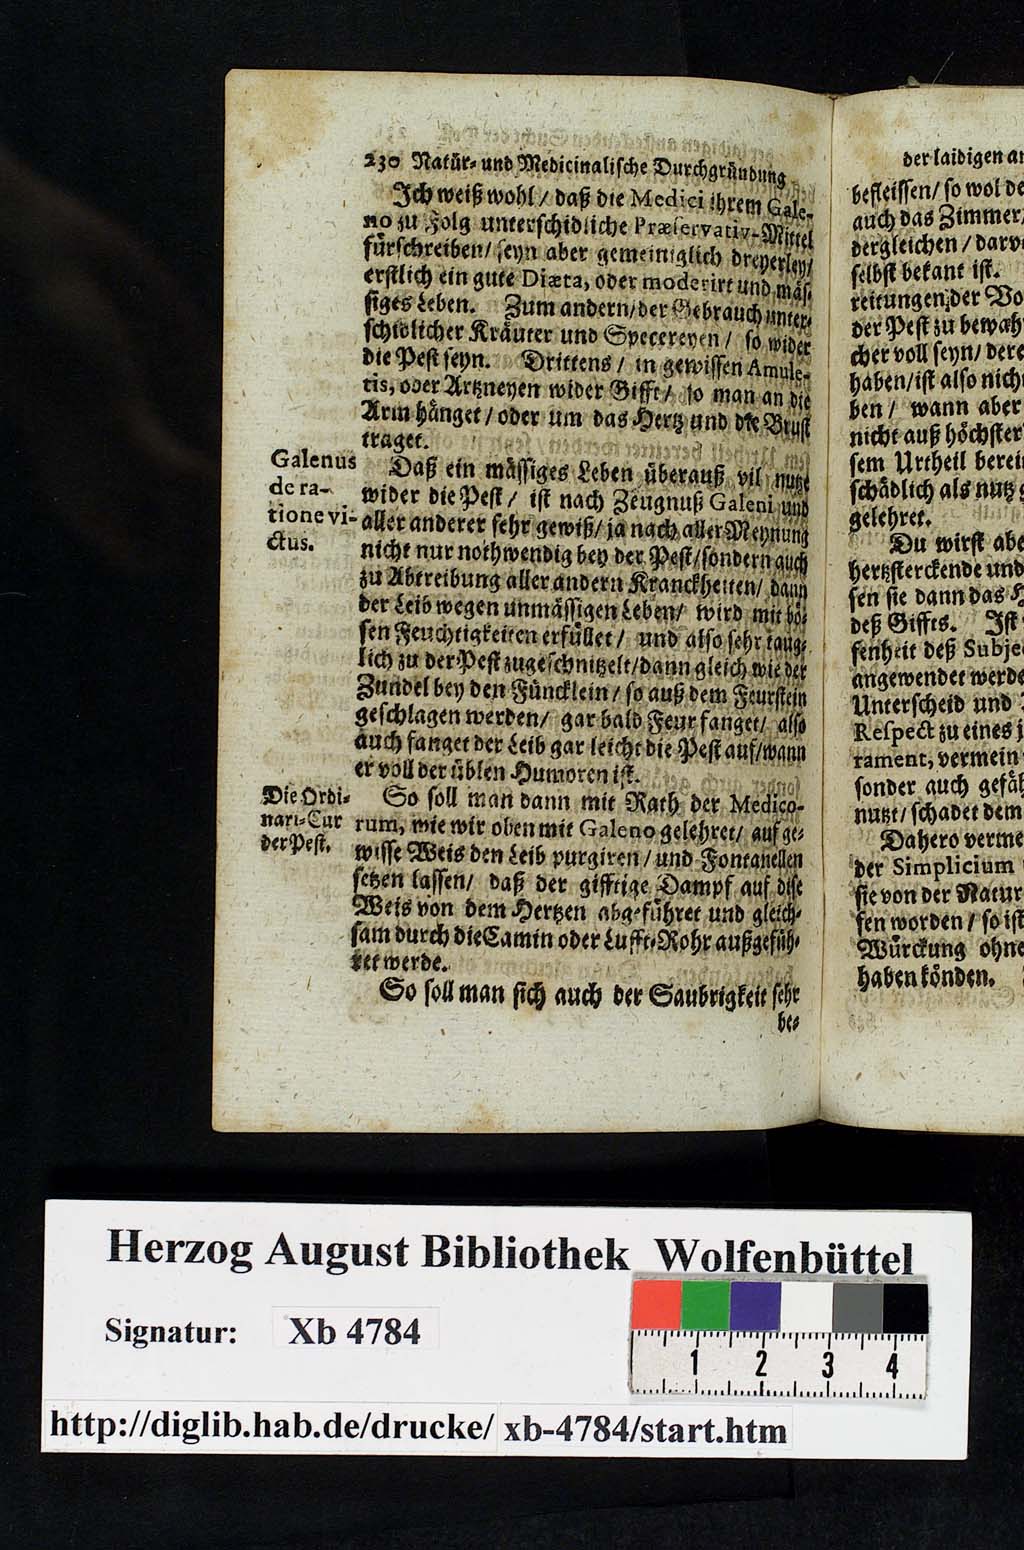 230 Natür- und Medicinalische Durchgründung
Ich weiß wohl / daß die Medici ihrem Gale-
no zu Folg unterschidliche Præservativ-Mittel
fürschreiben / seyn aber gemeiniglich dreyerley /
erstlich ein gute Diæta, oder moderirt und mäs-
siges Leben. Zum andern / der Gebrauch unter-
schidlicher Kräuter und Specereyen / so wider
die Pest seyn. Drittens / in gewissen Amule-
tis, oder Artzneyen wider Gifft / so man an die
Arm hänget / oder um das Hertz und die Brust
traget.
Galenus
de ra-
tione vi-
ctus.
Daß ein mässiges Leben überauß vil nutze
wider die Pest / ist nach Zeugnuß Galeni und
aller anderer sehr gewiß / ja nach aller Meynung
nicht nur nothwendig bey der Pest / sondern auch
zu Abtreibung aller andern Kranckheiten / dann
der Leib wegen unmässigen Leben / wird mit bö-
sen Feuchtigkeiten erfüllet / und also sehr taug-
lich zu der Pest zugeschnitzelt / dann gleich wie der
Zundel bey den Füncklein / so auß dem Feurstein
geschlagen werden / gar bald Feur fanget / also
auch fanget der Leib gar leicht die Pest auf / wann
er voll der üblen Humoren ist.
Die Ordi-
nari-Cur
der Pest.
So soll man dann mit Rath der Medico-
rum, wie wir oben mit Galeno gelehret / auf ge-
wisse Weis den Leib purgiren / und Fontanellen
setzen lassen / daß der gifftige Dampf auf dise
Weis von dem Hertzen abgeführet und gleich-
sam durch die Camin oder Lufft-Rohr außgefüh-
ret werde.
So soll man sich auch der Saubrigkeit sehr
be-
der laidigen an
befleissen / so wol de
auch das Zimmer /
dergleichen / darv
selbst bekant ist.
reitungen der Vo
der Pest zu bewahr
cher voll seyn / dere
haben / ist also nicht
ben / wann aber
nicht auß höchster
sem Urtheil berei
schädlich als nutz g
gelehret.
Du wirst abe
hertzsterckende und
sen sie dann das H
deß Giffts. Ist
senheit deß Subje
angewendet werde
Unterscheid und
Respect zu eines j
rament, vermein
sonder auch gefäh
nutzt / schadet dem
Dahero verme
der Simplicium
sie von der Natur
sen worden / so ist
Würckung ohne
haben könden.
Herzog August Bibliothek Wolfenbüttel
Signatur: Xb 4784
1 2 3 4
http://diglib.hab.de/drucke/ xb-4784/start.htm